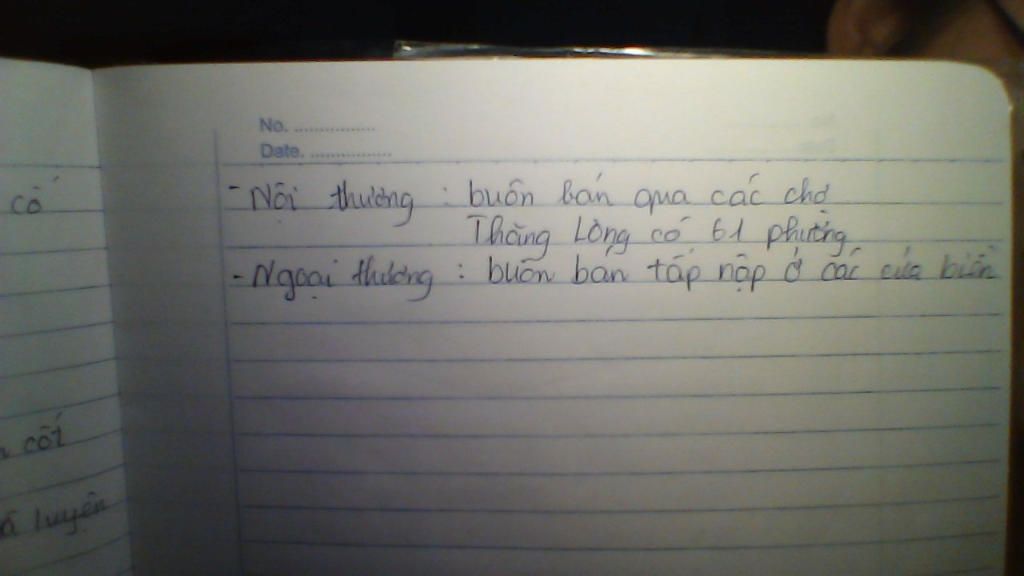 No. ................
Date. ................
cố
- Nội thương : buôn bán qua các chợ
Thăng Long có 61 phường
- Ngoại thương : buôn bán tấp nập ở các cửa biển
cốt
luyện